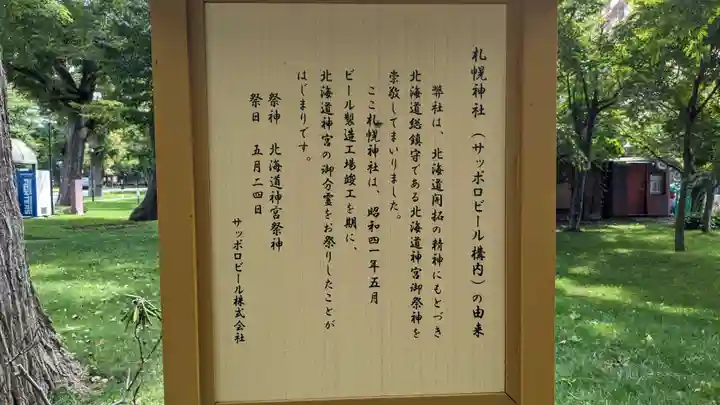 札幌神社（サッポロビール構内）の由来
弊社は、北海道開拓の精神にもとづき
北海道総鎮守である北海道神宮御祭神を
崇敬してまいりました。
ここ札幌神社は、昭和四一年五月
ビール製造工場竣工を期に、
北海道神宮の御分霊をお祭りしたことが
はじまりです。
祭神　北海道神宮祭神
祭日　五月二四日
サッポロビール株式会社